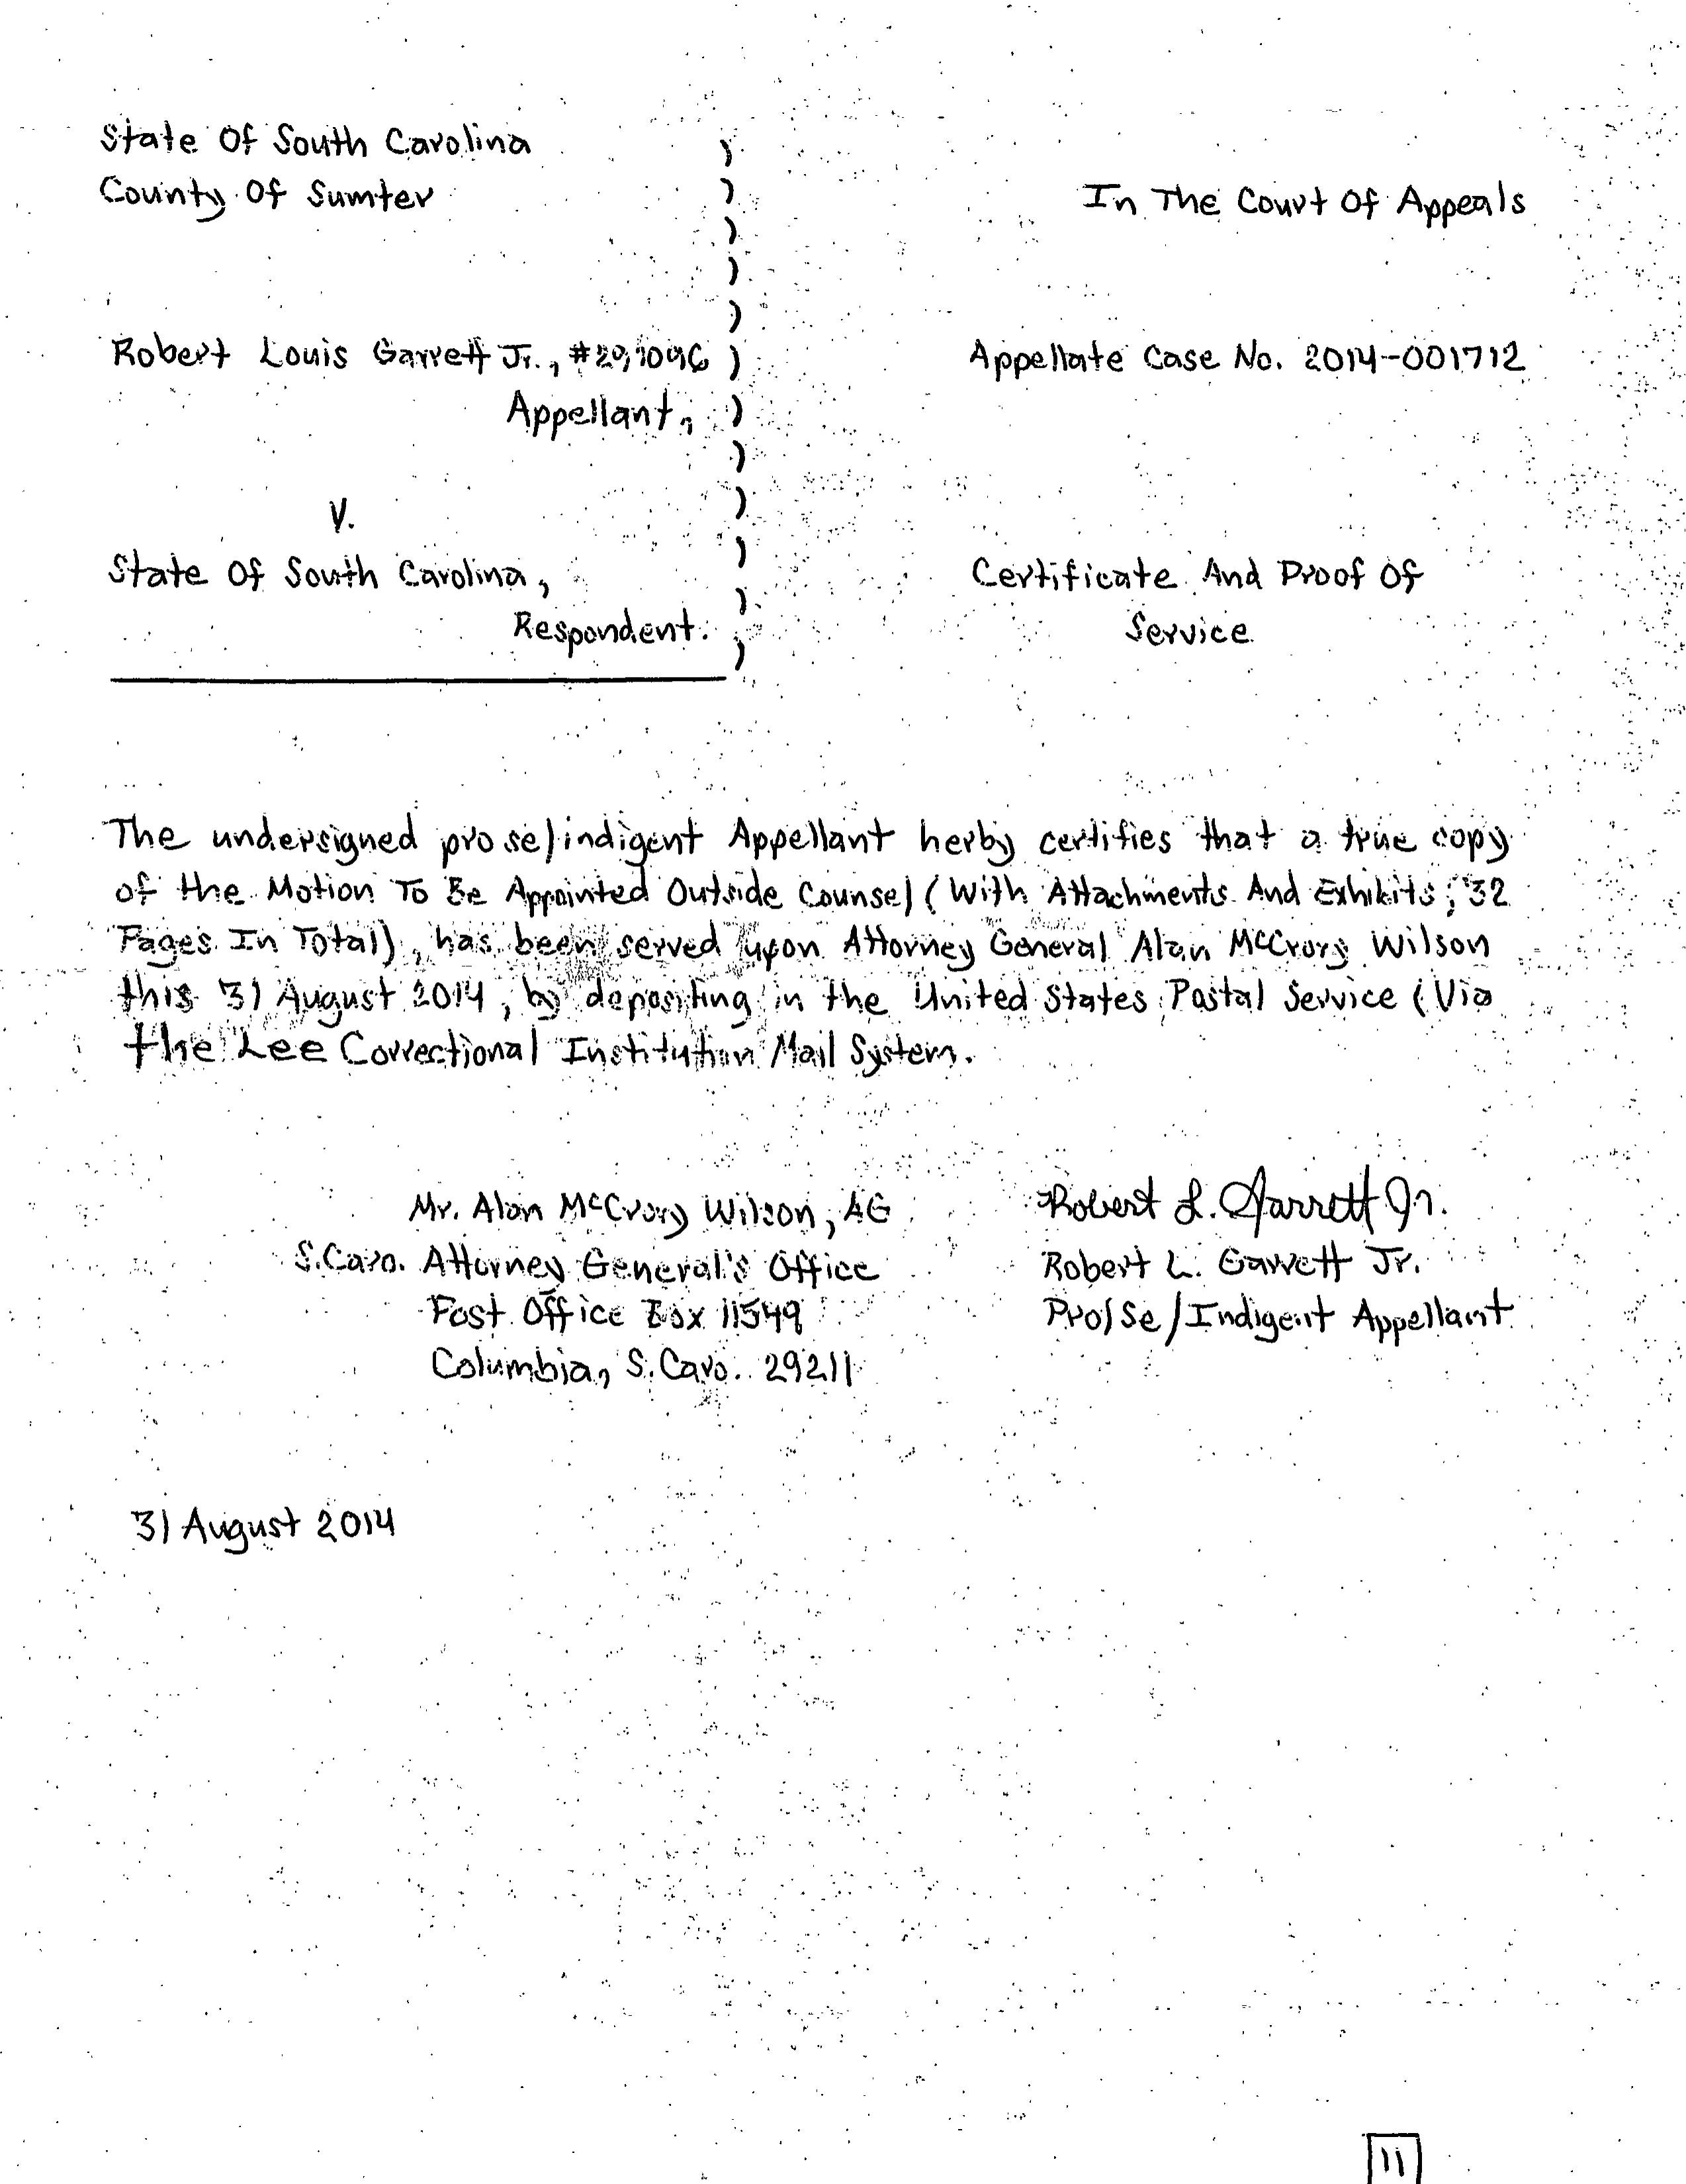 State Of South Carolina
County Of Sumter
In The Court Of Appeals
Robert Louis Garrett Jr.,
Appellate Case No. 2014-001712
Appellant,
V.
State Of South Carolina,
Certificate And Proof Of
Respondent.
Service
The undersigned pro se/indigent Appellant herby certifies that a true copy
of the Motion To Be Appointed Outside Counsel (With Attachments And Exhibits; 32
Pages In Total), has been served upon Attorney General Alan McCrory Wilson
this 31 August 2014, by depositing in the United States Postal Service (Via
the Lee Correctional Institution Mail System.
Mr. Alan McCrory Wilson, AG
S.Caro. Attorney General's Office
Post Office Box 11549
Columbia, S.Caro. 29211
Robert L. Garrett Jr.
Robert L. Garrett Jr.
Pro/Se/Indigent Appellant
31 August 2014
11